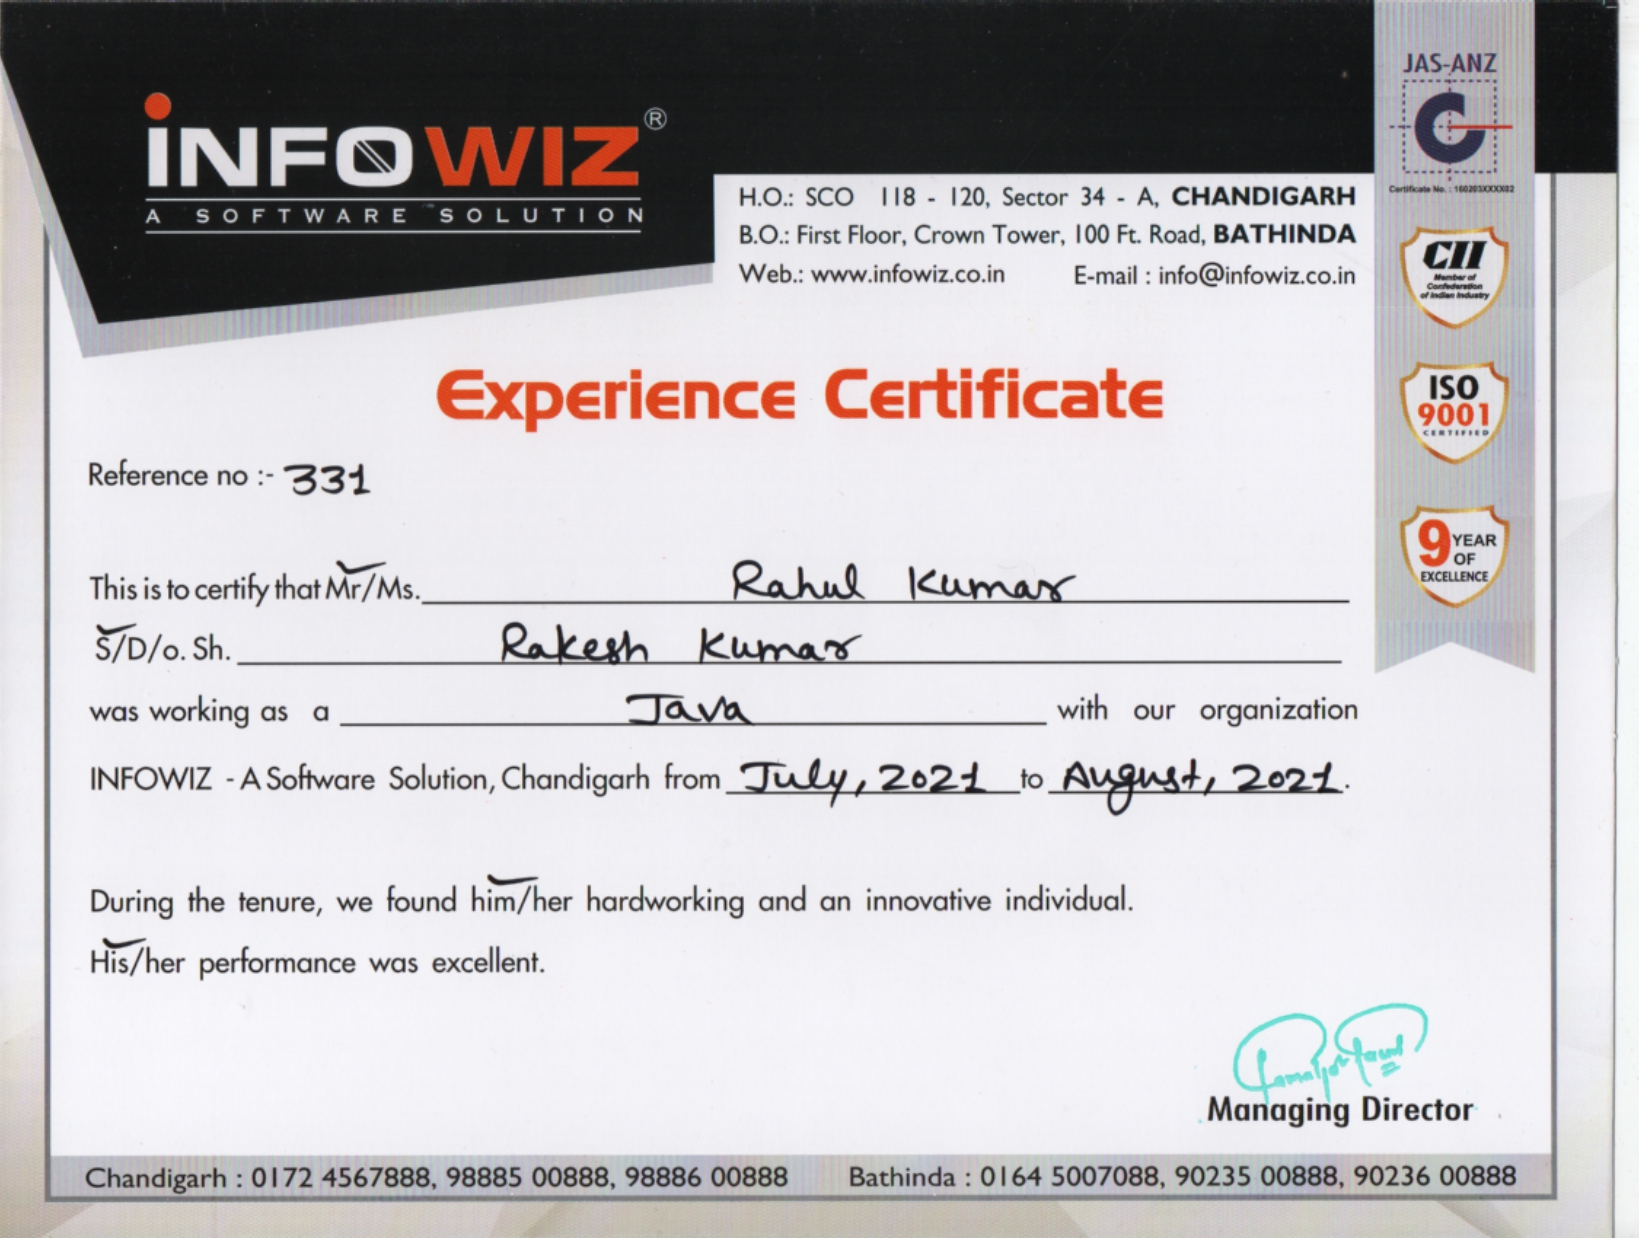 iNFOWIZ®
A SOFTWARE SOLUTION
H.O.: SCO 118 - 120, Sector 34 - A, CHANDIGARH
B.O.: First Floor, Crown Tower, 100 Ft. Road, BATHINDA
Web.: www.infowiz.co.in E-mail : info@infowiz.co.in
JAS-ANZ
Certificate No. : 160203XXXX02
CII
Member of
Confederation
of Indian Industry
ISO
9001
CERTIFIED
9 YEAR
OF
EXCELLENCE
Experience Certificate
Reference no :- 331
This is to certify that Mr/Ms. Rahul Kumar
S/D/o. Sh. Rakesh Kumar
was working as a Java with our organization
INFOWIZ - A Software Solution, Chandigarh from July, 2021 to August, 2021.
During the tenure, we found him/her hardworking and an innovative individual.
His/her performance was excellent.
Managing Director
Chandigarh : 0172 4567888, 98885 00888, 98886 00888 Bathinda : 0164 5007088, 90235 00888, 90236 00888